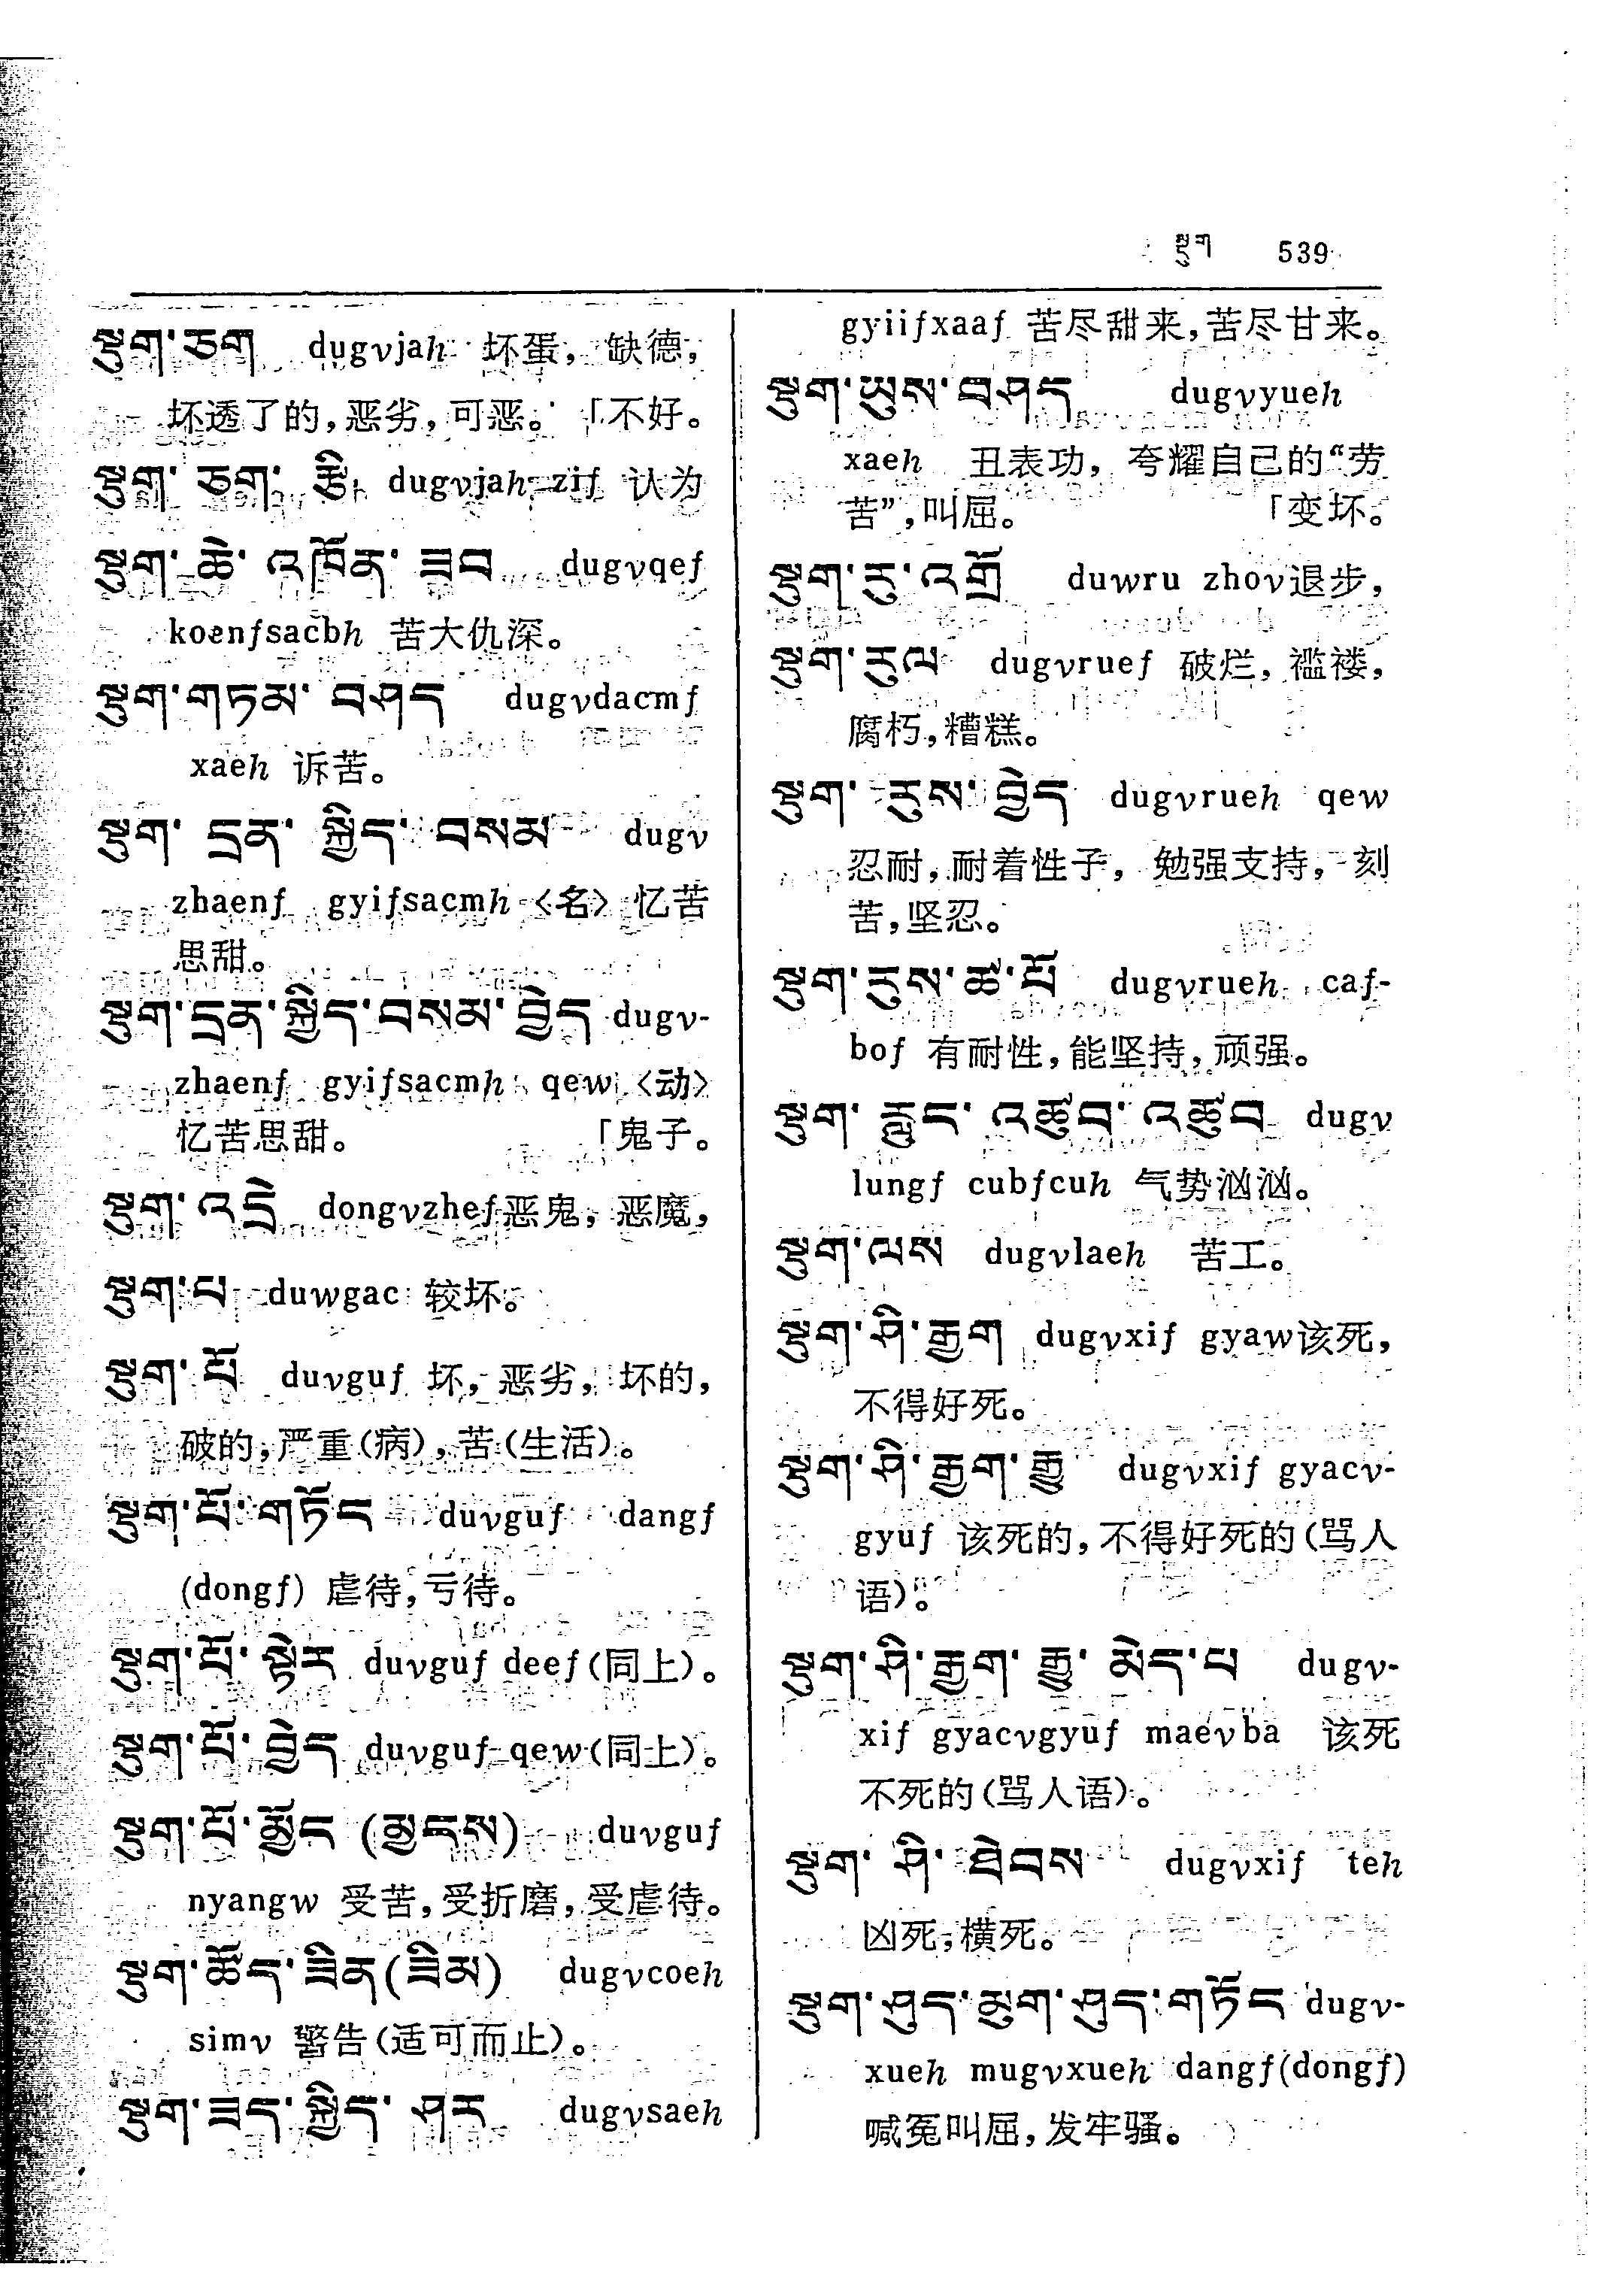 སྡུག 539
སྡུག་ཅག dugvjah 坏蛋，缺德，
坏透了的，恶劣，可恶。「不好。
སྡུག་ཅག་རྩི dugvjah zif 认为
སྡུག་ཆེ་འཁོན་ཟབ dugvqef
koenfsacbh 苦大仇深。
སྡུག་གཏམ་བཤད dugvdacmf
xaeh 诉苦。
སྡུག་དྲན་སྐྱིད་བསམ dugv
zhaenf gyifsacmh〈名〉忆苦
思甜。
སྡུག་དྲན་སྐྱིད་བསམ་བྱེད dugv-
zhaenf gyifsacmh qew〈动〉
忆苦思甜。「鬼子。
སྡུག་འདྲེ dongvzhef恶鬼，恶魔，
སྡུག་པ duwgac 较坏。
སྡུག་པོ duvguf 坏，恶劣，坏的，
破的，严重(病)，苦(生活)。
སྡུག་པོ་གཏོང duvguf dangf
(dongf) 虐待，亏待。
སྡུག་པོ་སྟེར duvguf deef(同上)。
སྡུག་པོ་བྱེད duvguf qew(同上)。
སྡུག་པོ་མྱོང (མྱངས) duvguf
nyangw 受苦，受折磨，受虐待。
སྡུག་ཚོད་ཟིན(ཟིམ) dugvcoeh
simv 警告(适可而止)。
སྡུག་ཟད་སྐྱིད་ཤར dugvsaeh
gyiifxaaf 苦尽甜来，苦尽甘来。
སྡུག་ཡུས་བཤད dugvyueh
xaeh 丑表功，夸耀自己的“劳
苦”，叫屈。「变坏。
སྡུག་རུ་འགྲོ duwru zhov退步，
སྡུག་རུལ dugvruef 破烂，褴褛，
腐朽，糟糕。
སྡུག་རུས་བྱེད dugvrueh qew
忍耐，耐着性子，勉强支持，刻
苦，坚忍。
སྡུག་རུས་ཚ་པོ dugvrueh caf-
bof 有耐性，能坚持，顽强。
སྡུག་རླུང་འཚུབ་འཚུབ dugv
lungf cubfcuh 气势汹汹。
སྡུག་ལས dugvlaeh 苦工。
སྡུག་ཤི་རྒྱག dugvxif gyaw该死，
不得好死。
སྡུག་ཤི་རྒྱག་རྒྱུ dugvxif gyacv-
gyuf 该死的，不得好死的(骂人
语)。
སྡུག་ཤི་རྒྱག་རྒྱུ་མེད་པ dugv-
xif gyacvgyuf maevba 该死
不死的(骂人语)。
སྡུག་ཤི་ཐེབས dugvxif teh
凶死，横死。
སྡུག་ཤུད་མུག་ཤུད་གཏོང dugv-
xueh mugvxueh dangf(dongf)
喊冤叫屈，发牢骚。